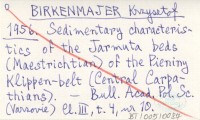 BIRKENMAJER Krzysztof
1956. Sedimentary characteris-
tics of the Jarmuta beds
(Maestrichtian) of the Pieniny
Klippen-belt (Central Carpa-
thians). – Bull. Acad. Pol. Sc.
(Varsovie) Cl. III, t. 4, nr 10.